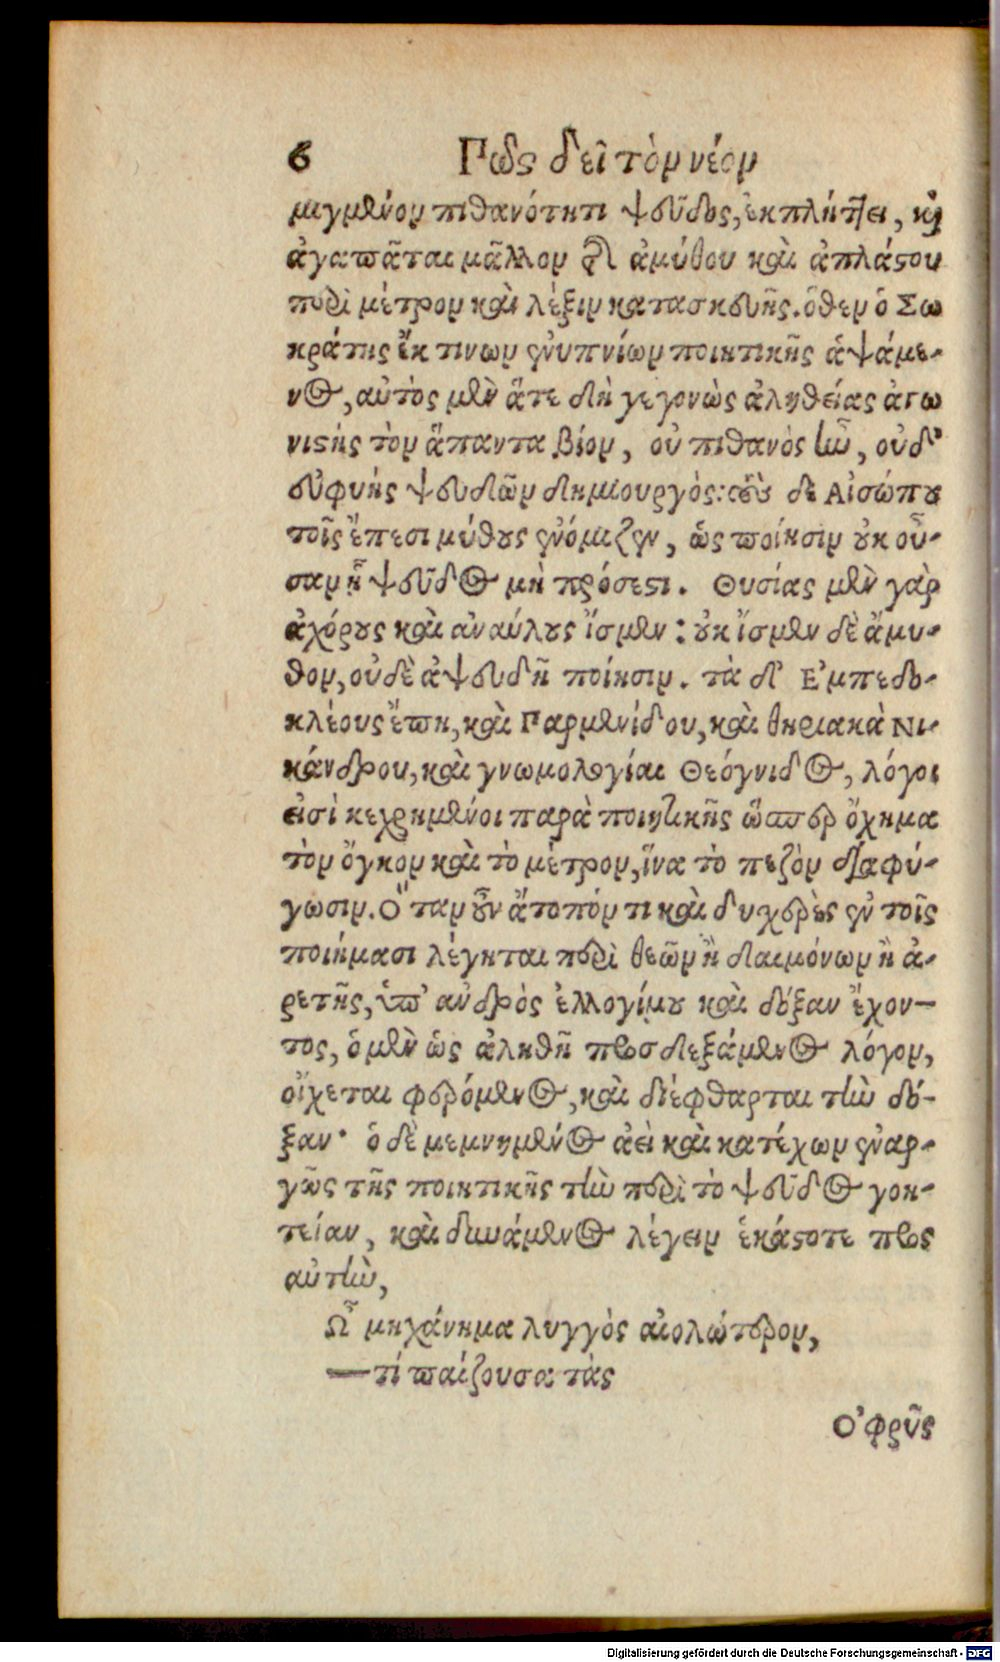 6 Πῶς δεῖ τὸν νέον
μιγμένον πιθανότητι ψεῦδος, ἐκπλήττει, καὶ
ἀγαπᾶται μᾶλλον τῆς ἀμύθου καὶ ἀπλάστου
περὶ μέτρον καὶ λέξιν κατασκευῆς. ὅθεν ὁ Σω
κράτης ἔκ τινων ἐνυπνίων ποιητικῆς ἁψάμε-
νος, αὐτὸς μὲν ἅτε δὴ γεγονὼς ἀληθείας ἀγω
νιστὴς τὸν ἅπαντα βίον, οὐ πιθανὸς ἦν, οὐδ'
εὐφυὴς ψευδῶν δημιουργός: τοὺς δὲ Αἰσώπου
τοῖς ἔπεσι μύθους ἐνόμιζεν, ὡς ποίησιν οὐκ οὖ-
σαν ᾗ ψεῦδος μὴ πρόσεστι. Θυσίας μὲν γὰρ
ἀχόρους καὶ ἀναύλους ἴσμεν: οὐκ ἴσμεν δὲ ἄμυ-
θον, οὐδὲ ἀψευδῆ ποίησιν. τὰ δ' Ἐμπεδο-
κλέους ἔπη, καὶ Παρμενίδου, καὶ θηριακὰ Νι-
κάνδρου, καὶ γνωμολογίαι Θεόγνιδος, λόγοι
εἰσὶ κεχρημένοι παρὰ ποιητικῆς ὥσπερ ὄχημα
τὸν ὄγκον καὶ τὸ μέτρον, ἵνα τὸ πεζὸν διαφύ-
γωσιν. Ὅταν οὖν ἄτοπόν τι καὶ δυχερὲς ἐν τοῖς
ποιήμασι λέγηται περὶ θεῶν ἢ δαιμόνων ἢ ἀ-
ρετῆς, ὑπ' ἀνδρὸς ἐλλογίμου καὶ δόξαν ἔχον-
τος, ὁ μὲν ὡς ἀληθῆ προσδεξάμενος λόγον,
οἴχεται φερόμενος, καὶ διέφθαρται τὴν δό-
ξαν· ὁ δὲ μεμνημένος ἀεὶ καὶ κατέχων ἐναρ-
γῶς τῆς ποιητικῆς τὴν περὶ τὸ ψεῦδος γοη-
τείαν, καὶ δυνάμενος λέγειν ἑκάστοτε πρὸς
αὐτὴν,
Ὦ μηχάνημα λυγγὸς αἰολώτερον,
—τί παίζουσα τὰς
Ὀφρῦς
Digitalisierung gefördert durch die Deutsche Forschungsgemeinschaft - DFG